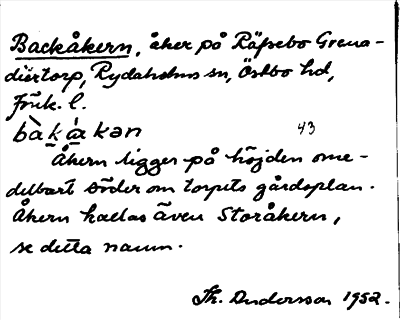 Backåkern, åker på Räfsebo Grena-
diertorp, Rydaholms sn, Östbo hd,
Jönk. l.
bàkákən 43
Åkern ligger på höjden ome-
delbart söder om torpets gårdsplan.
Åkern kallas även Storåkern,
se detta namn.
Th. Andersson 1952.